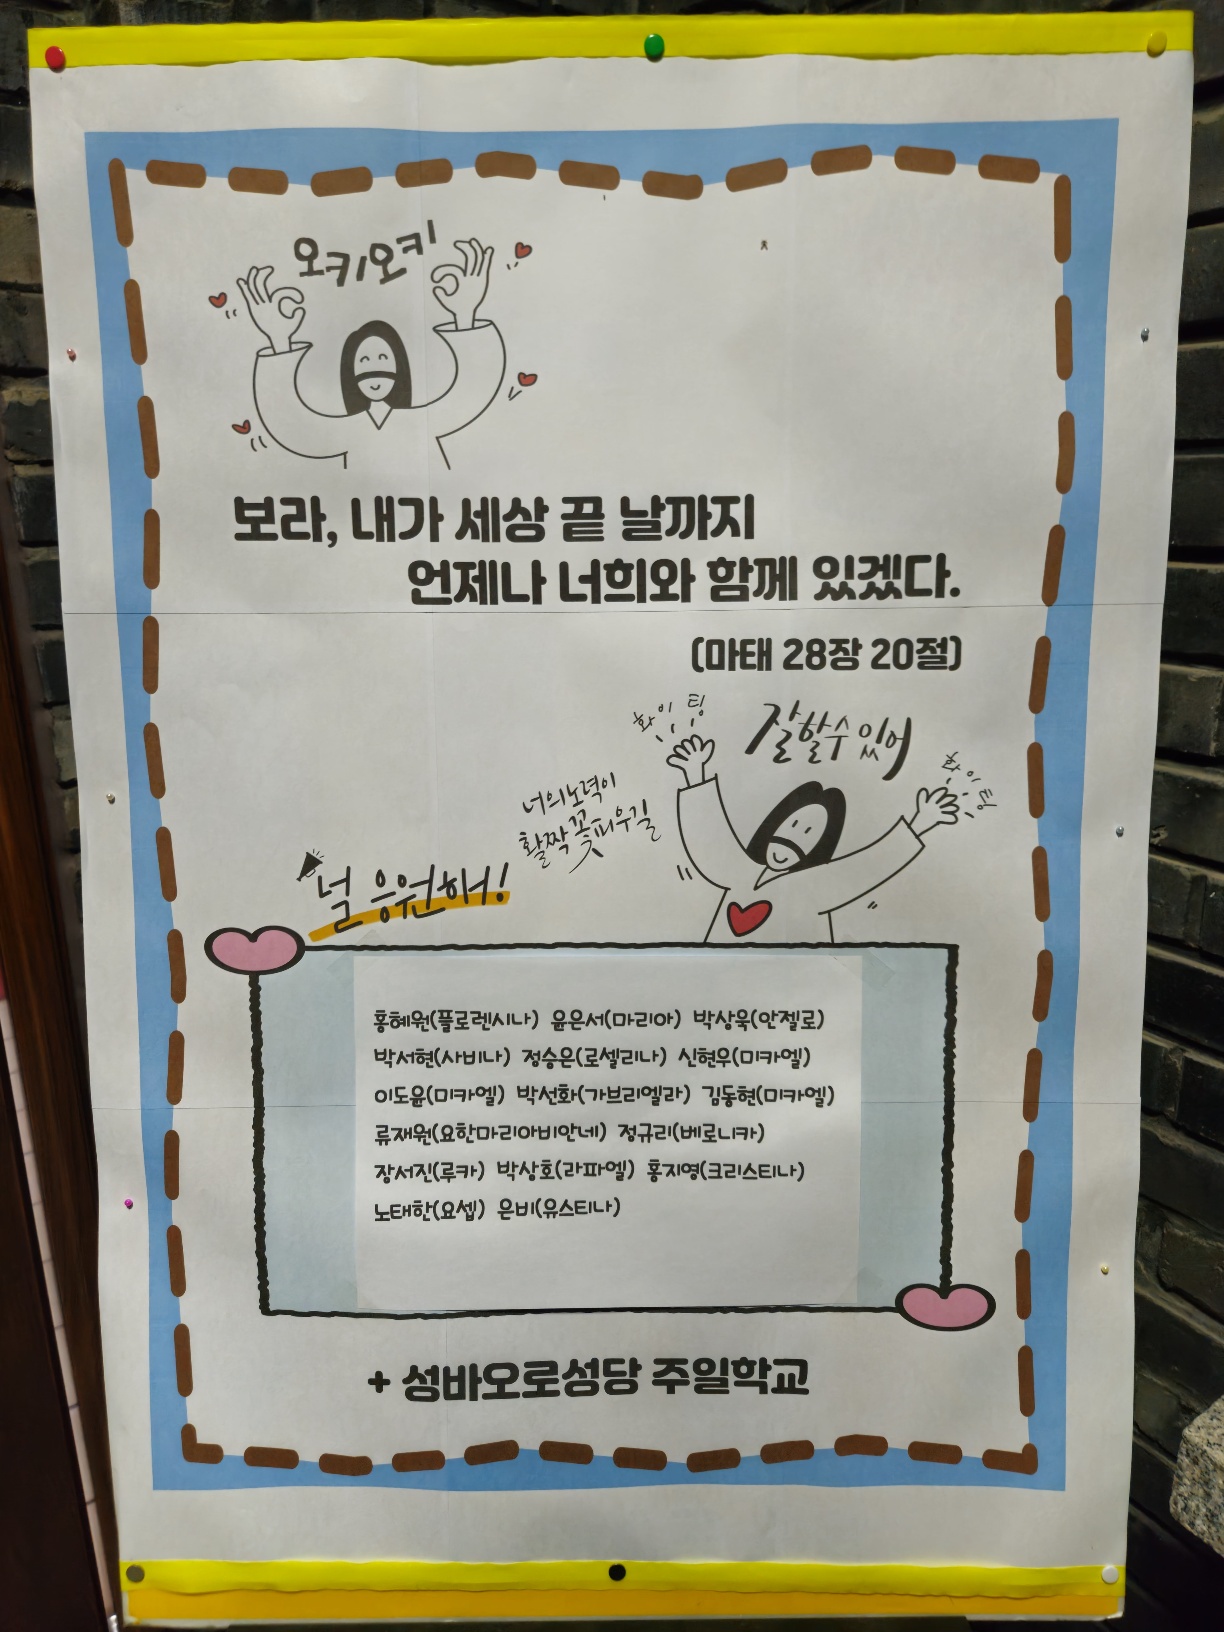 오키오키
보라, 내가 세상 끝 날까지
언제나 너희와 함께 있겠다.
(마태 28장 20절)
화이팅
잘할수있어
화이팅
너의노력이
활짝꽃피우길
널 응원해!
홍혜원(플로렌시나) 윤은서(마리아) 박상욱(안젤로)
박서현(사비나) 정승은(로셀리나) 신현우(미카엘)
이도윤(미카엘) 박선화(가브리엘라) 김동현(미카엘)
류재원(요한마리아비안네) 정규리(베로니카)
장서진(루카) 박상호(라파엘) 홍지영(크리스티나)
노태한(요셉) 은비(유스티나)
+ 성바오로성당 주일학교